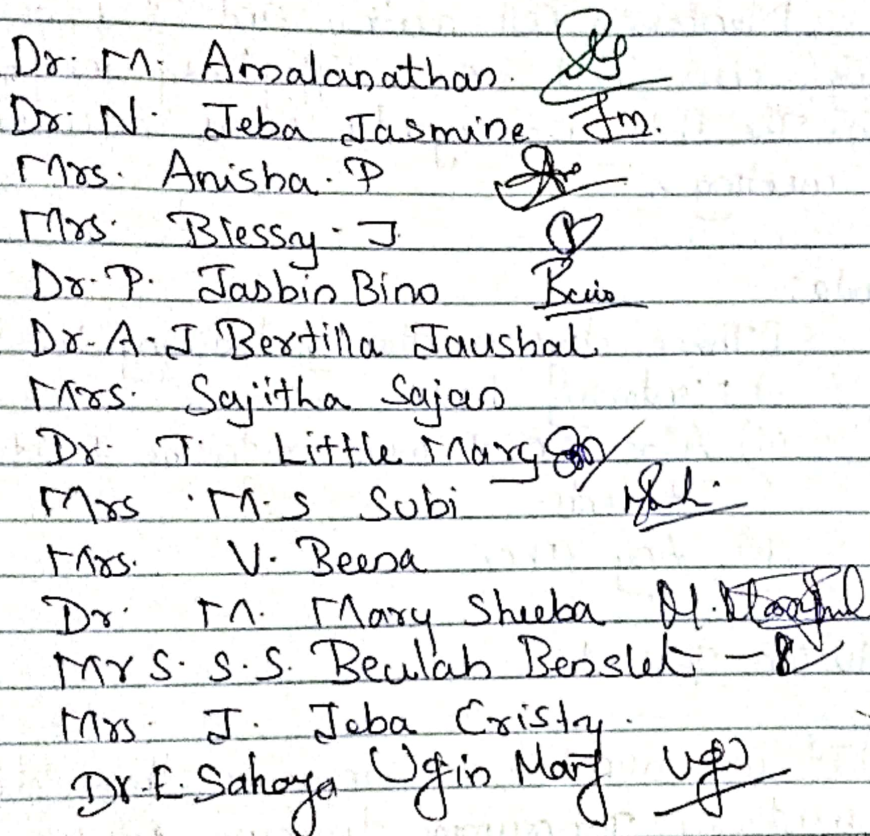 Dr. M. Amalanathan.
Dr. N. Jeba Jasmine Jm.
Mrs. Anisha. P
Mrs. Blessy. J
Dr. P. Jasbin Bino
Dr. A. J Bertilla Jaushal
Mrs. Sajitha Sajan
Dr. T. Little Mary
Mrs. M. S Subi
Mrs. V. Beena
Dr. M. Mary Sheeba
Mrs. S.S. Beulah Benslet -
Mrs. J. Jeba Cristy.
Dr. E. Sahaya Ugin Mary